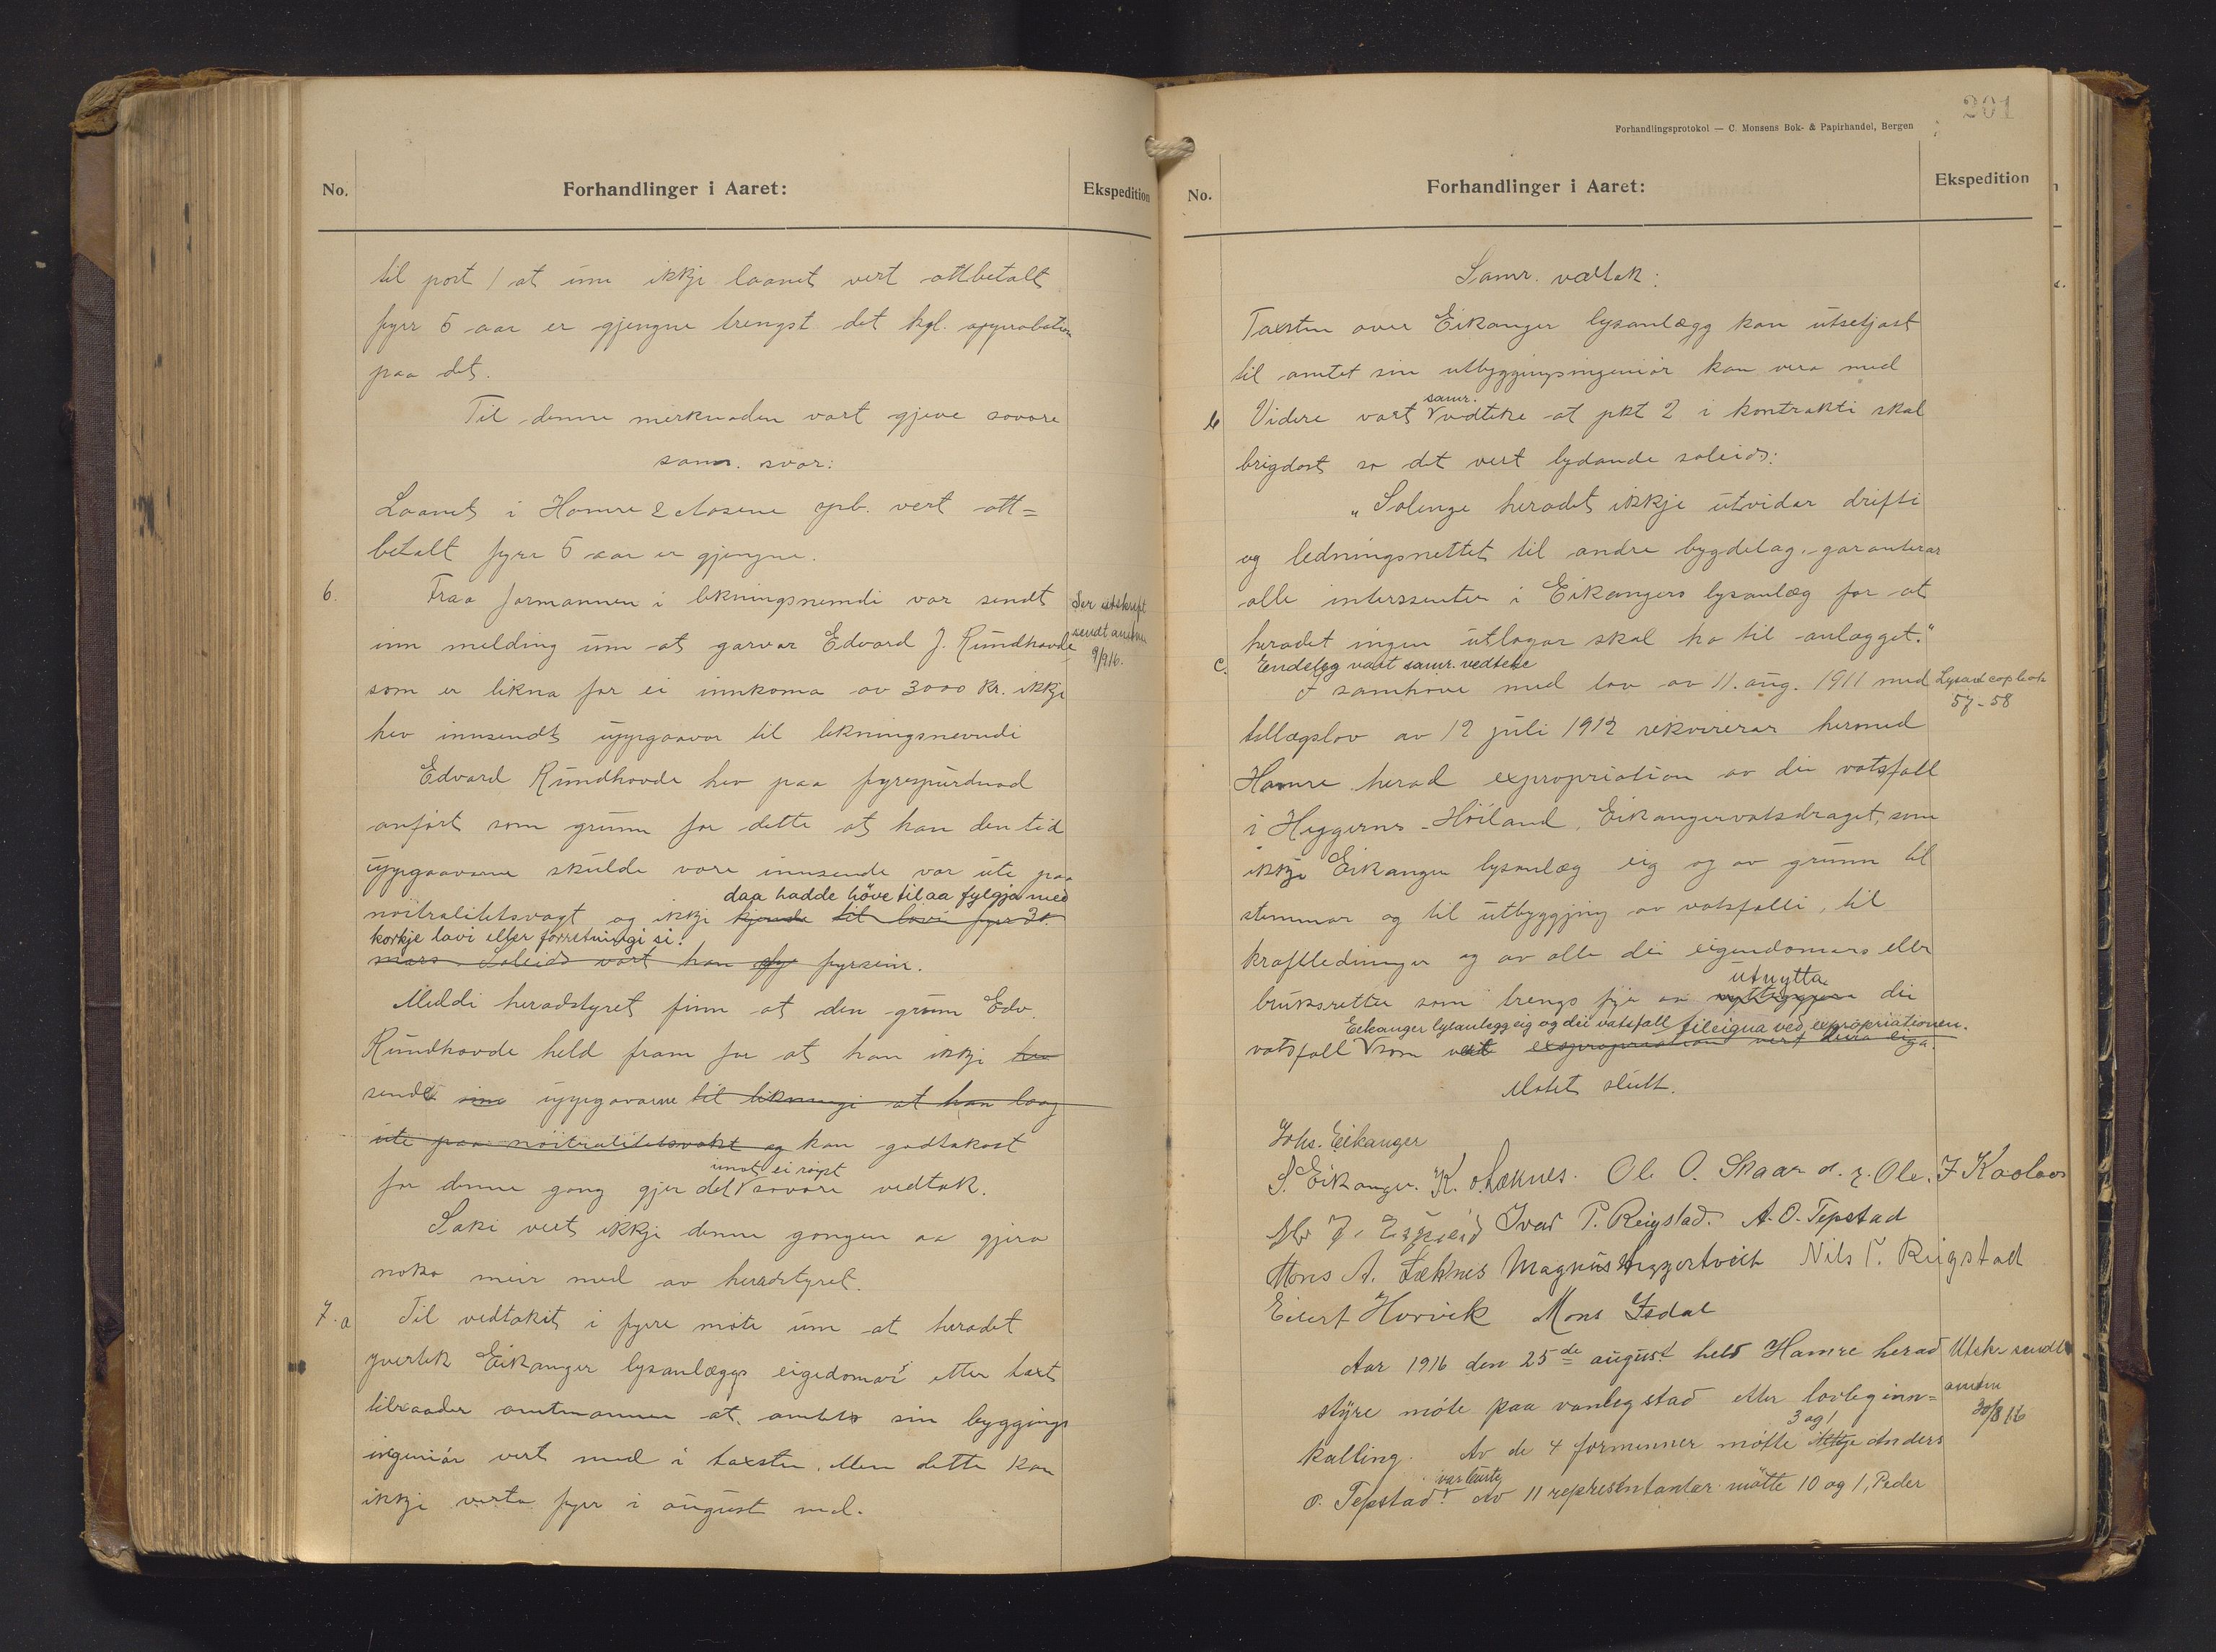 No.
Forhandlinger i Aaret:
Ekspedition
til post 1 at um ikkje laanet vert attbetalt
fyrr 5 aar er gjengne trengst det kgl. approbation
paa det.
Til denne merknaden vart gjeve sovore
samr. svar:
Laanet i Hamre & Aasene sprb. vert att=
betalt fyrr 5 aar er gjengne.
6. Fraa formannen i likningsnemdi var sendt
Ser utskrift
inn melding um at garvar Edvard J. Rundhovde
sendt amtm
9/9 16.
som er likna for ei innkoma av 3000 kr. ikkje
hev innsendt uppgaavor til likningsnevndi
Edvard Rundhovde hev paa fyrespurdnad
anført som grunn for dette at han den tid
uppgaavorne skulde vore innsende var ute paa
daa hadde høve til aa fylgja med
nøitralitetsvagt og ikkje kjende til lovi fyrr 30.
korkje lovi eller forretningi si.
mars. Soleids vart han fyrsein.
Meddi heradstyret finn at den grunn Edv.
Rundhovde held fram for at han ikkje hev
sendt sine uppgavorne til likningi at han laag
ute paa nøitralitetsvakt og kan godtakast
imot ei røyst
for denne gong gjer det sovore vedtak.
Saki vert ikkje denne gongen aa gjera
noko meir med av heradstyret.
7. a Til vedtaket i fyrre møte um at heradet
yvertek Eikanger lysanlæggs eigedomar etter taxt
tilraader amtmannen at amtet sin byggings
ingeniør vert med i taxsten. Men dette kan
ikkje verta fyrr i august md.
201
Forhandlingsprotokol — C. Monsens Bok- & Papirhandel, Bergen
No.
Forhandlinger i Aaret:
Ekspedition
Samr. vedtak:
Taxsten over Eikanger lysanlægg kan utsetjast
til amtet sin utbyggingsingeniør kan vera med
samr.
b Videre vart vedteke at pkt 2 i kontrakti skal
brigdast so det vert lydande soleids:
„Solenge heradet ikkje utvidar drifti
og ledningsnettet til andre bygdelag, garanterar
alle interssenter i Eikangers lysanlæg for at
heradet ingen utlagor skal ha til anlægget."
c. Endeleg vart samr. vedteke
I samhøve med lov av 11. aug. 1911 med
Lysaxt copbok
57-58
tillægslov av 12 juli 1912 rekvirerar hermed
Hamre herad expropriation av dei vatsfall
i Heggernes-Høiland, Eikangervatsdraget, som
ikkje Eikanger lysanlæg eig og av grunn til
stemmor og til utbyggjing av vatsfalli, til
kraftledninger og av alle dei eigendomars eller
utnytta
bruksretter som trengs fyr aa dei
Eikanger lysanlegg eig og dei vatsfall tileigna ved expropriationen.
vatsfall som ved expropriation vert deira eiga.
Møtet slutt.
Johs. Eikanger
S. Eikanger. K. Sæknes. Ole O. Skaar d. y. Ole J Kaalaas
Ivar P. Reigstad. A. O. Tepstad
Mons A. Sæknes Magnus Nils T. Reigstad
Eilert Horvik Mons Isdal
Aar 1916 den 25de august held Hamre herad
Utskr sendt
amtm
30/8 16
styre møte paa vanleg stad etter lovleg inn=
kalling.
3 og 1
Av de 4 formenner møtte Anders
var burte
O. Tepstad. Av 11 representantar møtte 10 og 1, Peder